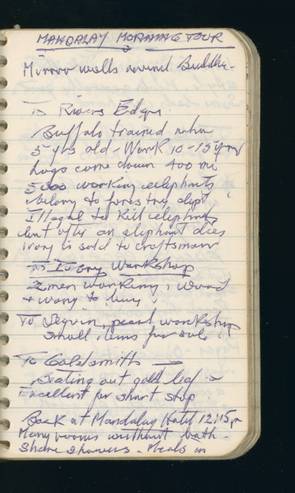 MANDALAY MORNING TOUR
Mirror walls around Buddha.
To Rivers Edge,
Buffalo trained when
5 yrs old - Work 10-15 yrs
Logs come down 400 mi
5,000 working elephants
belong to forestry dept.
Illegal to kill elephants
but after an elephant dies
ivory is sold to craftsmen
To Ivory Workshop
2 men working, wood
& ivory to buy,
To Sequin, pearl workshop
Small items for sale,
To Goldsmiths —
beating out gold leaf -
Excellent for short stop
Back at Mandalay Hotel 12:15p
Many rooms without bath.
Share showers. Meals in